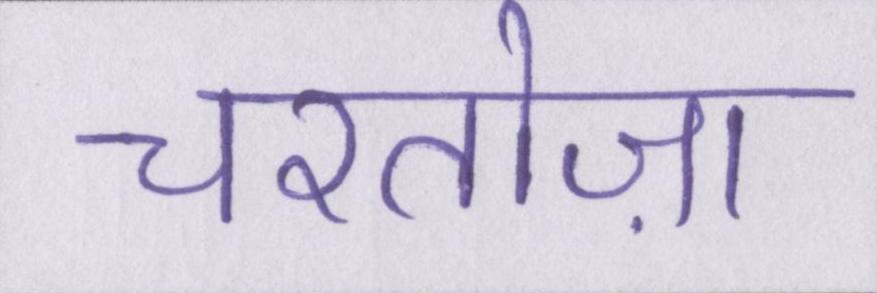 चरतोज़ा